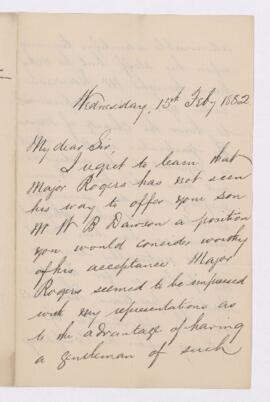 Wednesday, 15th Feby 1882
My dear Sir,
I regret to learn that
Major Rogers has not seen
his way to offer your son
Mr W B Dawson a position
you would consider worthy
of his acceptance. Major
Rogers seemed to be impressed
with my representations as
to the advantage of having
a gentleman of such